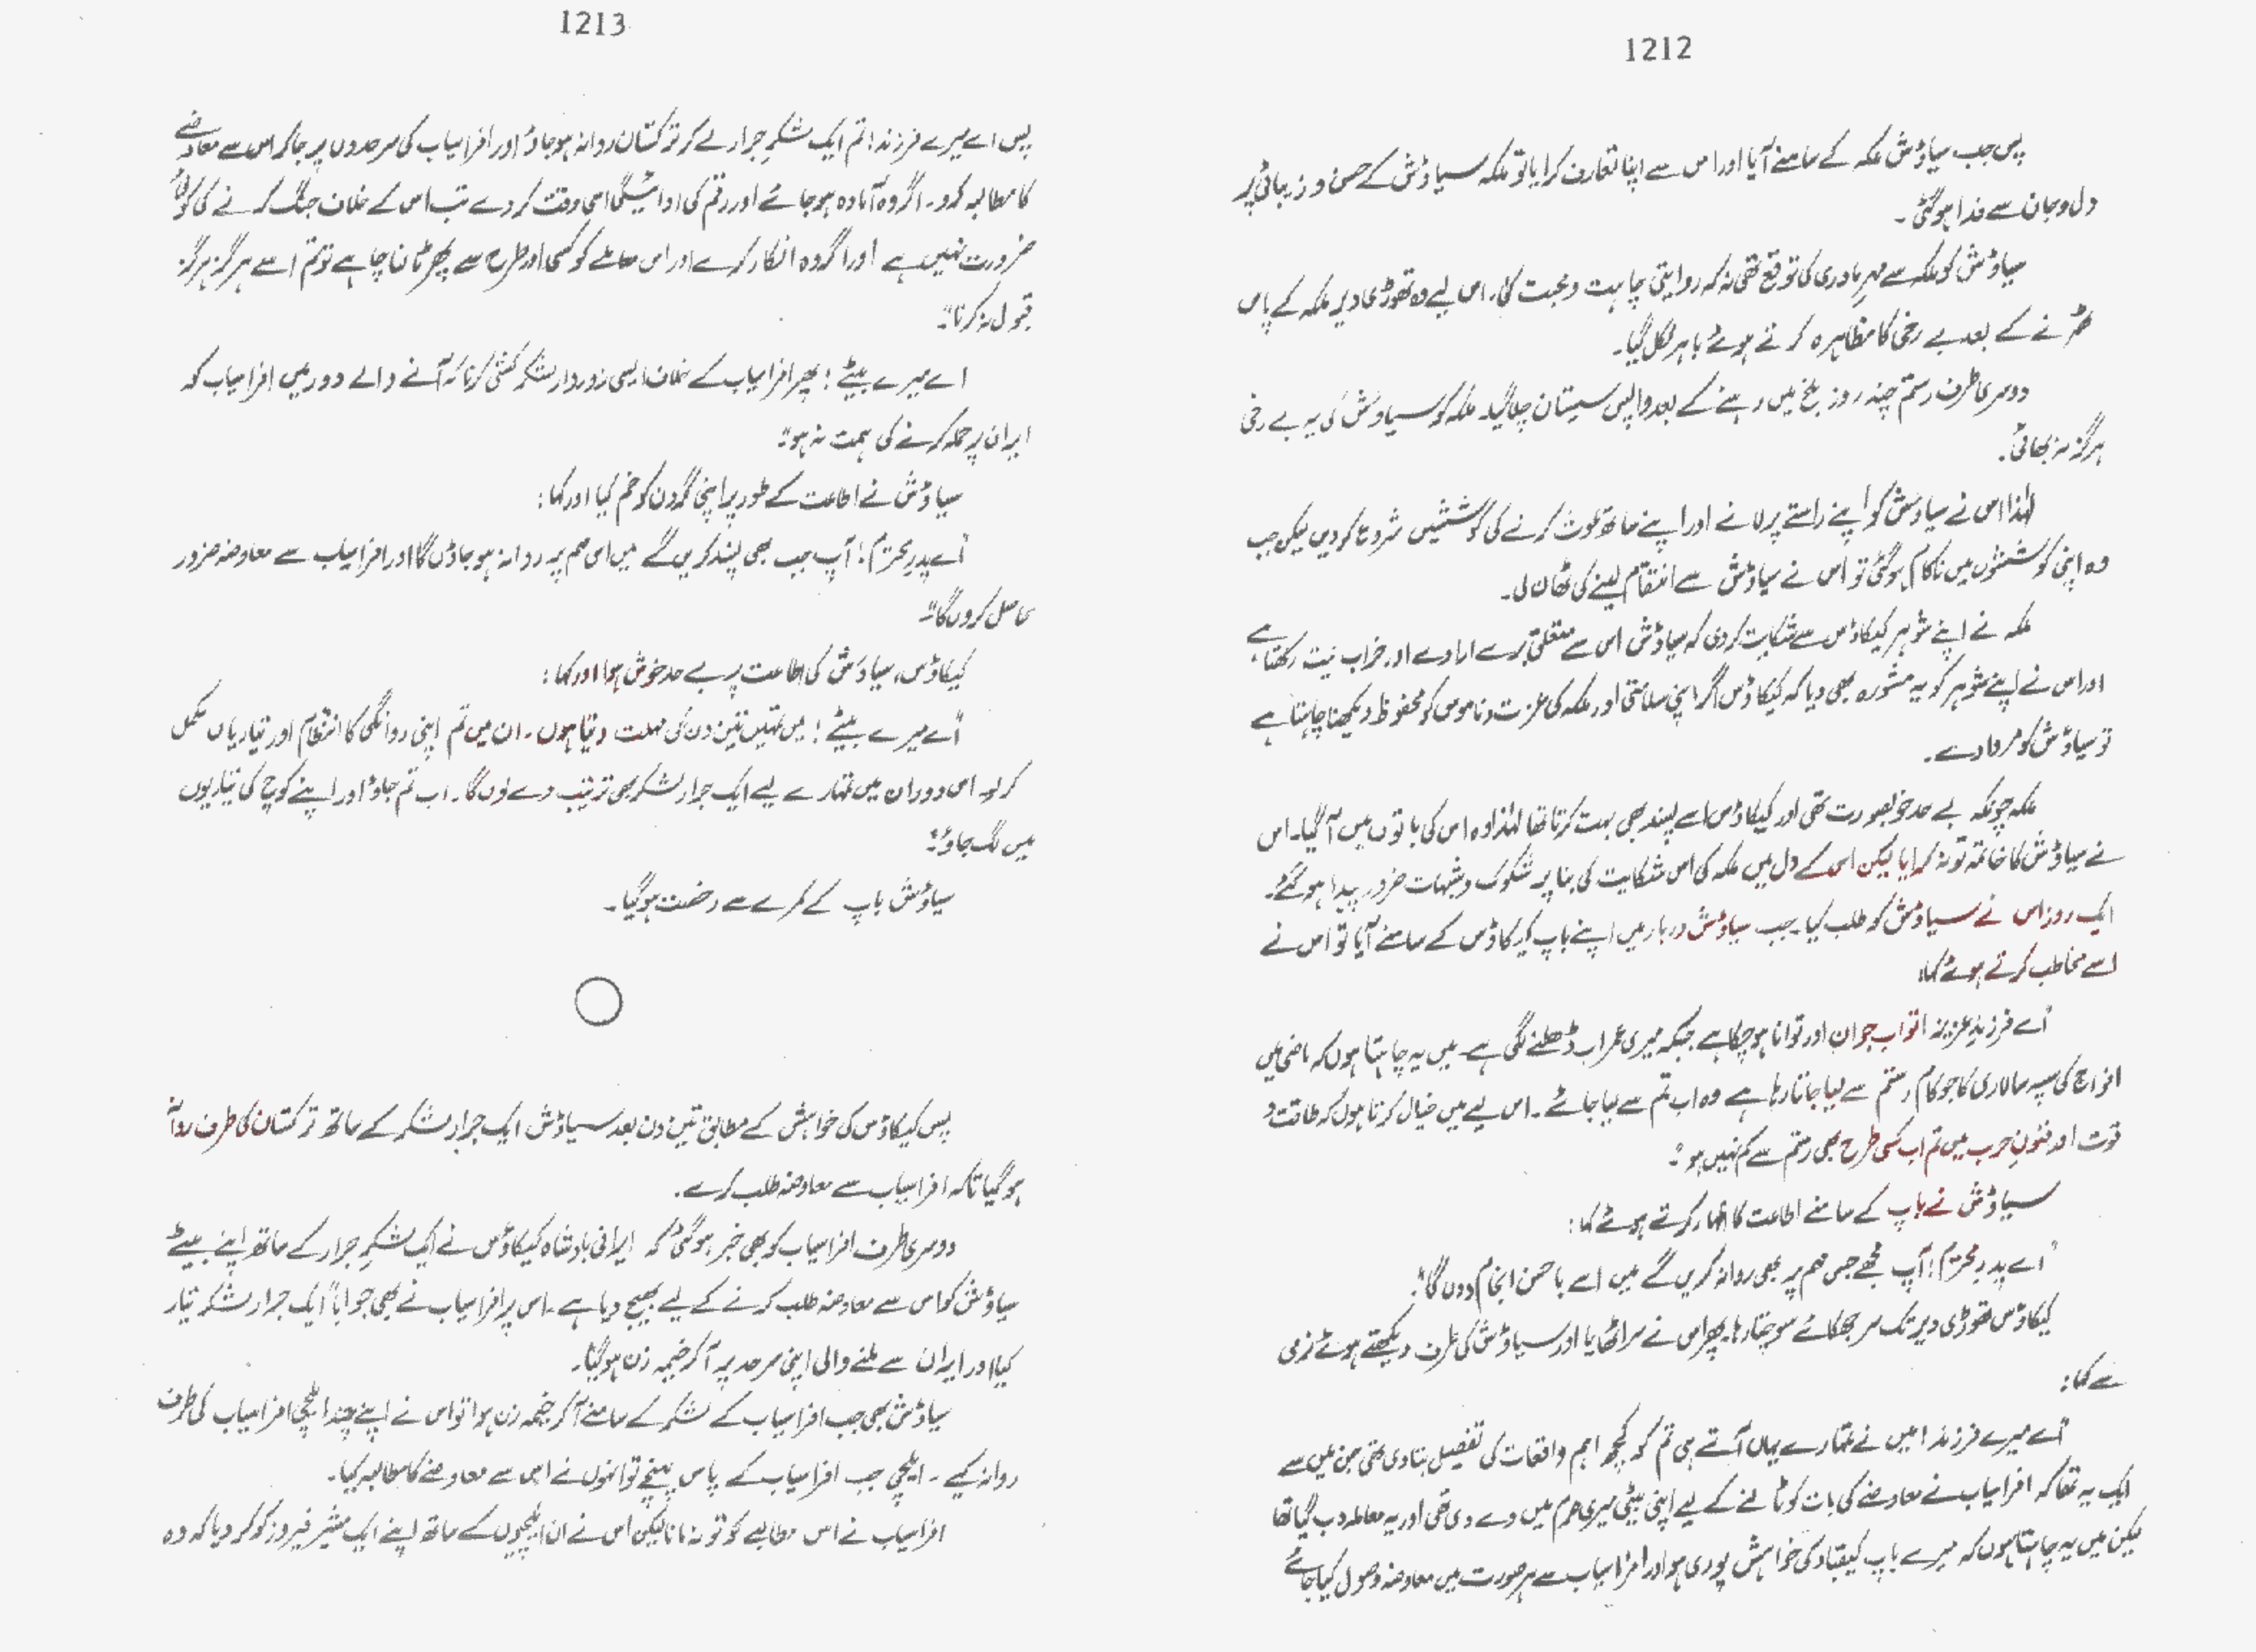 1212
پس جب سیاوُش ملکہ کے سامنے آیا اور اس سے اپنا تعارف کرایا تو ملکہ سیاوُش کے حسن و زیبائی پر
دل و جان سے فدا ہو گئی ۔
سیاوُش کو ملکہ سے مہرِ مادری کی توقع تھی نہ کہ روایتی چاہت و محبت کی، اس لیے وہ تھوڑی دیر ملکہ کے پاس
ٹھہرنے کے بعد بے رخی کا مظاہرہ کرتے ہوئے باہر نکل گیا۔
دوسری طرف رستم چند روز بلخ میں رہنے کے بعد واپس سیستان چلا گیا۔ ملکہ کو سیاوُش کی یہ بے رخی
ہرگز نہ بھائی۔
لہٰذا اس نے سیاوُش کو اپنے راستے پر لانے اور اپنے ساتھ ملوث کرنے کی کوششیں شروع کر دیں لیکن جب
وہ اپنی کوششوں میں ناکام ہو گئی تو اس نے سیاوُش سے انتقام لینے کی ٹھان لی۔
ملکہ نے اپنے شوہر کیکاؤس سے شکایت کر دی کہ سیاوُش اس سے متعلق برے ارادے اور خراب نیت رکھتا ہے
اور اس نے اپنے شوہر کو یہ مشورہ بھی دیا کہ کیکاؤس اگر اپنی سلامتی اور ملکہ کی عزت و ناموس کو محفوظ دیکھنا چاہتا ہے
تو سیاوُش کو مروا دے۔
ملکہ چونکہ بے حد خوبصورت تھی اور کیکاؤس اسے پسند بھی بہت کرتا تھا لہٰذا وہ اس کی باتوں میں آ گیا۔ اس
نے سیاوُش کا خاتمہ تو نہ کرایا لیکن اس کے دل میں ملکہ کی اس شکایت کی بنا پر شکوک و شبہات ضرور پیدا ہو گئے۔
ایک روز اس نے سیاوُش کو طلب کیا۔ جب سیاوُش دربار میں اپنے باپ کیکاؤس کے سامنے آیا تو اس نے
اسے مخاطب کرتے ہوئے کہا:
"اے فرزندِ عزیز! تو اب جوان اور توانا ہو چکا ہے جبکہ میری عمر اب ڈھلنے لگی ہے۔ میں یہ چاہتا ہوں کہ ماضی میں
افواج کی سپہ سالاری کا جو کام رستم سے لیا جاتا رہا ہے وہ اب تم سے لیا جائے۔ اس لیے میں خیال کرتا ہوں کہ طاقت و
قوت اور فنونِ حرب میں تم اب کسی طرح بھی رستم سے کم نہیں ہو"۔
سیاوُش نے باپ کے سامنے اطاعت کا اظہار کرتے ہوئے کہا:
"اے پدرِ محترم! آپ مجھے جس مہم پر بھی روانہ کریں گے میں اسے باحسن انجام دوں گا"۔
کیکاؤس تھوڑی دیر تک سر جھکائے سوچتا رہا۔ پھر اس نے سر اٹھایا اور سیاوُش کی طرف دیکھتے ہوئے نرمی
سے کہا:
"اے میرے فرزند! میں نے تمہارے یہاں آتے ہی تم کو کچھ اہم واقعات کی تفصیل بتا دی تھی جن میں سے
ایک یہ تھا کہ افراسیاب نے معاوضے کی بات کو ٹالنے کے لیے اپنی بیٹی میری حرم میں دے دی تھی اور یہ معاملہ دب گیا تھا
لیکن میں یہ چاہتا ہوں کہ میرے باپ کیقباد کی خواہش پوری ہو اور افراسیاب سے ہر صورت میں معاوضہ وصول کیا جائے
1213
پس اے میرے فرزند! تم ایک لشکرِ جرار لے کر ترکستان روانہ ہو جاؤ اور افراسیاب کی سرحدوں پر جا کر اس سے معاوضے
کا مطالبہ کرو۔ اگر وہ آمادہ ہو جائے اور رقم کی ادائیگی اسی وقت کر دے تب اس کے خلاف جنگ کرنے کی کوئی
ضرورت نہیں ہے اور اگر وہ انکار کرے اور اس معاملے کو کسی اور طرح سے پھر ٹالنا چاہے تو تم اسے ہرگز ہرگز
قبول نہ کرنا"۔
اے میرے بیٹے! پھر افراسیاب کے خلاف ایسی زوردار لشکر کشی کرنا کہ آنے والے دور میں افراسیاب کو
ایران پر حملہ کرنے کی ہمت نہ ہو"۔
سیاوُش نے اطاعت کے طور پر اپنی گردن کو خم کیا اور کہا:
"اے پدرِ محترم! آپ جب بھی پسند کریں گے میں اس مہم پر روانہ ہو جاؤں گا اور افراسیاب سے معاوضہ ضرور
حاصل کروں گا"۔
کیکاؤس، سیاوُش کی اطاعت پر بے حد خوش ہوا اور کہا:
"اے میرے بیٹے! میں تمہیں تین دن کی مہلت دیتا ہوں۔ ان میں تم اپنی روانگی کا انتظام اور تیاریاں مکمل
کر لو۔ اس دوران میں تمہارے لیے ایک جرار لشکر بھی ترتیب دے لوں گا۔ اب تم جاؤ اور اپنے کوچ کی تیاریوں
میں لگ جاؤ"۔
سیاوُش باپ کے کمرے سے رخصت ہو گیا۔
پس کیکاؤس کی خواہش کے مطابق تین دن بعد سیاوُش ایک جرار لشکر کے ساتھ ترکستان کی طرف روانہ
ہو گیا تاکہ افراسیاب سے معاوضہ طلب کرے۔
دوسری طرف افراسیاب کو بھی خبر ہو گئی کہ ایرانی بادشاہ کیکاؤس نے ایک لشکرِ جرار کے ساتھ اپنے بیٹے
سیاوُش کو اس سے معاوضہ طلب کرنے کے لیے بھیج دیا ہے۔ اس پر افراسیاب نے بھی جواباً ایک جرار لشکر تیار
کیا اور ایران سے ملنے والی اپنی سرحد پر آ کر خیمہ زن ہو گیا۔
سیاوُش بھی جب افراسیاب کے لشکر کے سامنے آ کر خیمہ زن ہوا تو اس نے اپنے چند ایلچی افراسیاب کی طرف
روانہ کیے ۔ ایلچی جب افراسیاب کے پاس پہنچے تو انہوں نے اس سے معاوضے کا مطالبہ کیا۔
افراسیاب نے اس مطالبے کو تو نہ مانا لیکن اس نے ان ایلچیوں کے ساتھ اپنے ایک مشیر فیروز کو کر دیا کہ وہ